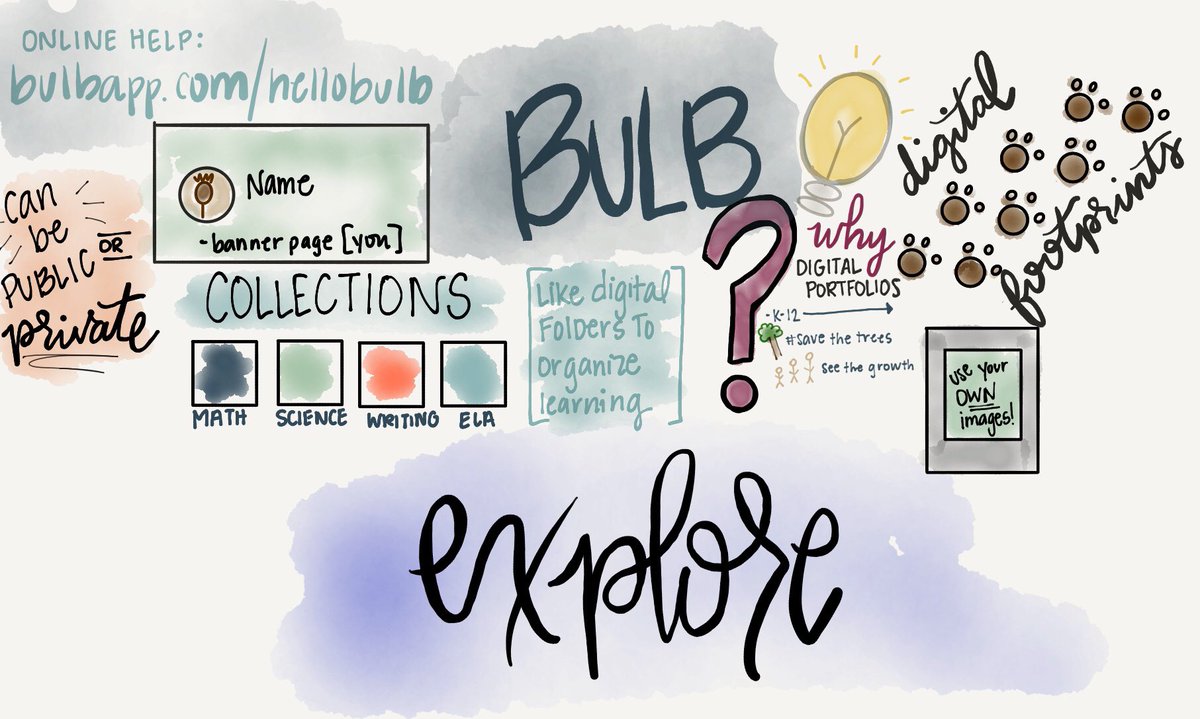 ONLINE HELP:
bulbapp.com/hellobulb
BULB
Name
-banner page [you]
can
be
PUBLIC OR
private
COLLECTIONS
MATH
SCIENCE
WRITING
ELA
Like digital
Folders To
Organize
learning
why
DIGITAL
PORTFOLIOS
-K-12
#save the trees
see the growth
digital
footprints
use your
OWN
images!
explore